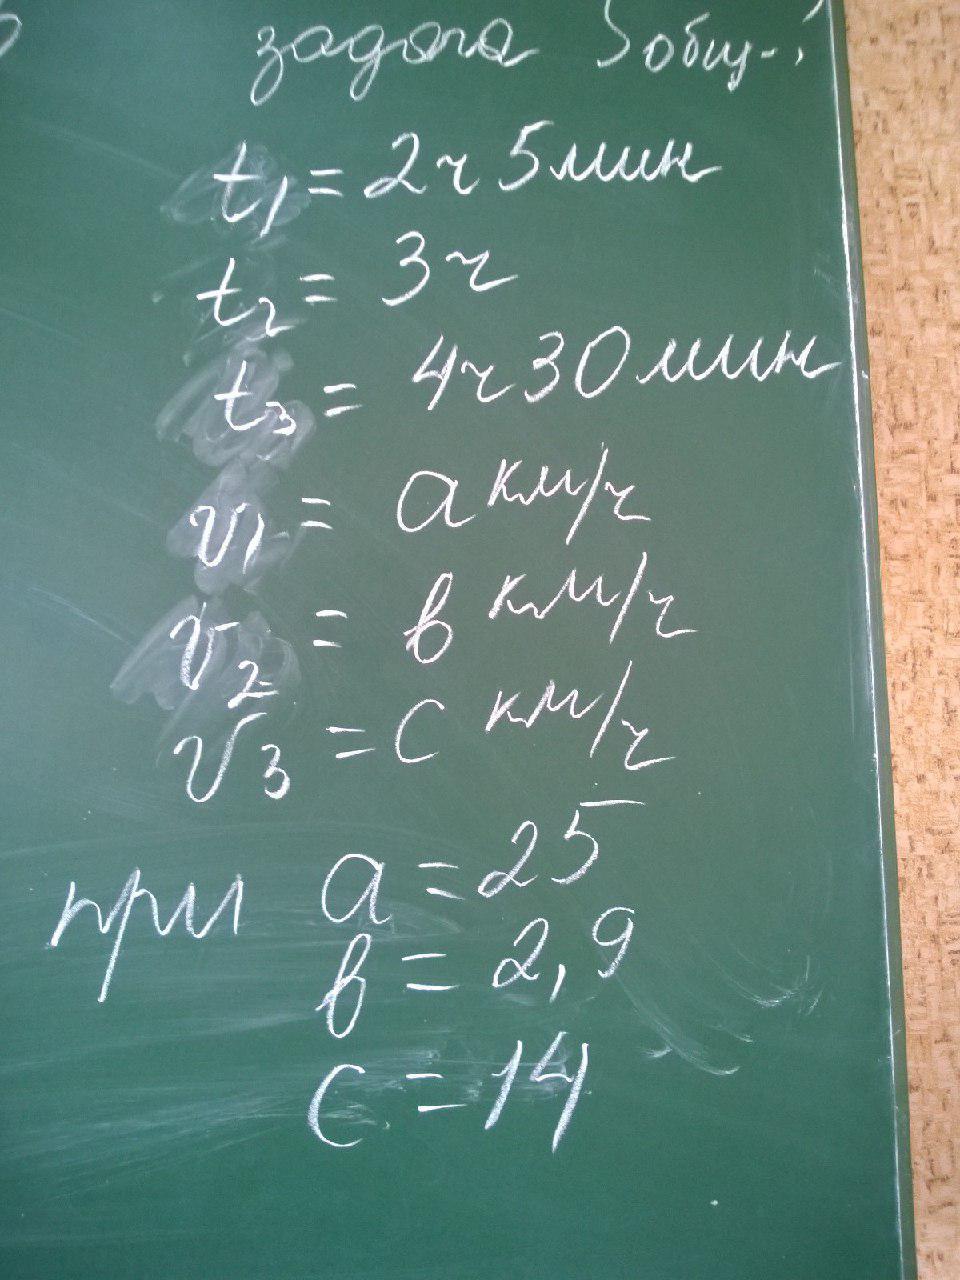 задача S общ-?
t₁ = 2ч 5мин
t₂ = 3ч
t₃ = 4ч 30мин
v₁ = a км/ч
v₂ = в км/ч
v₃ = c км/ч
при a = 25
в = 2,9
c = 14